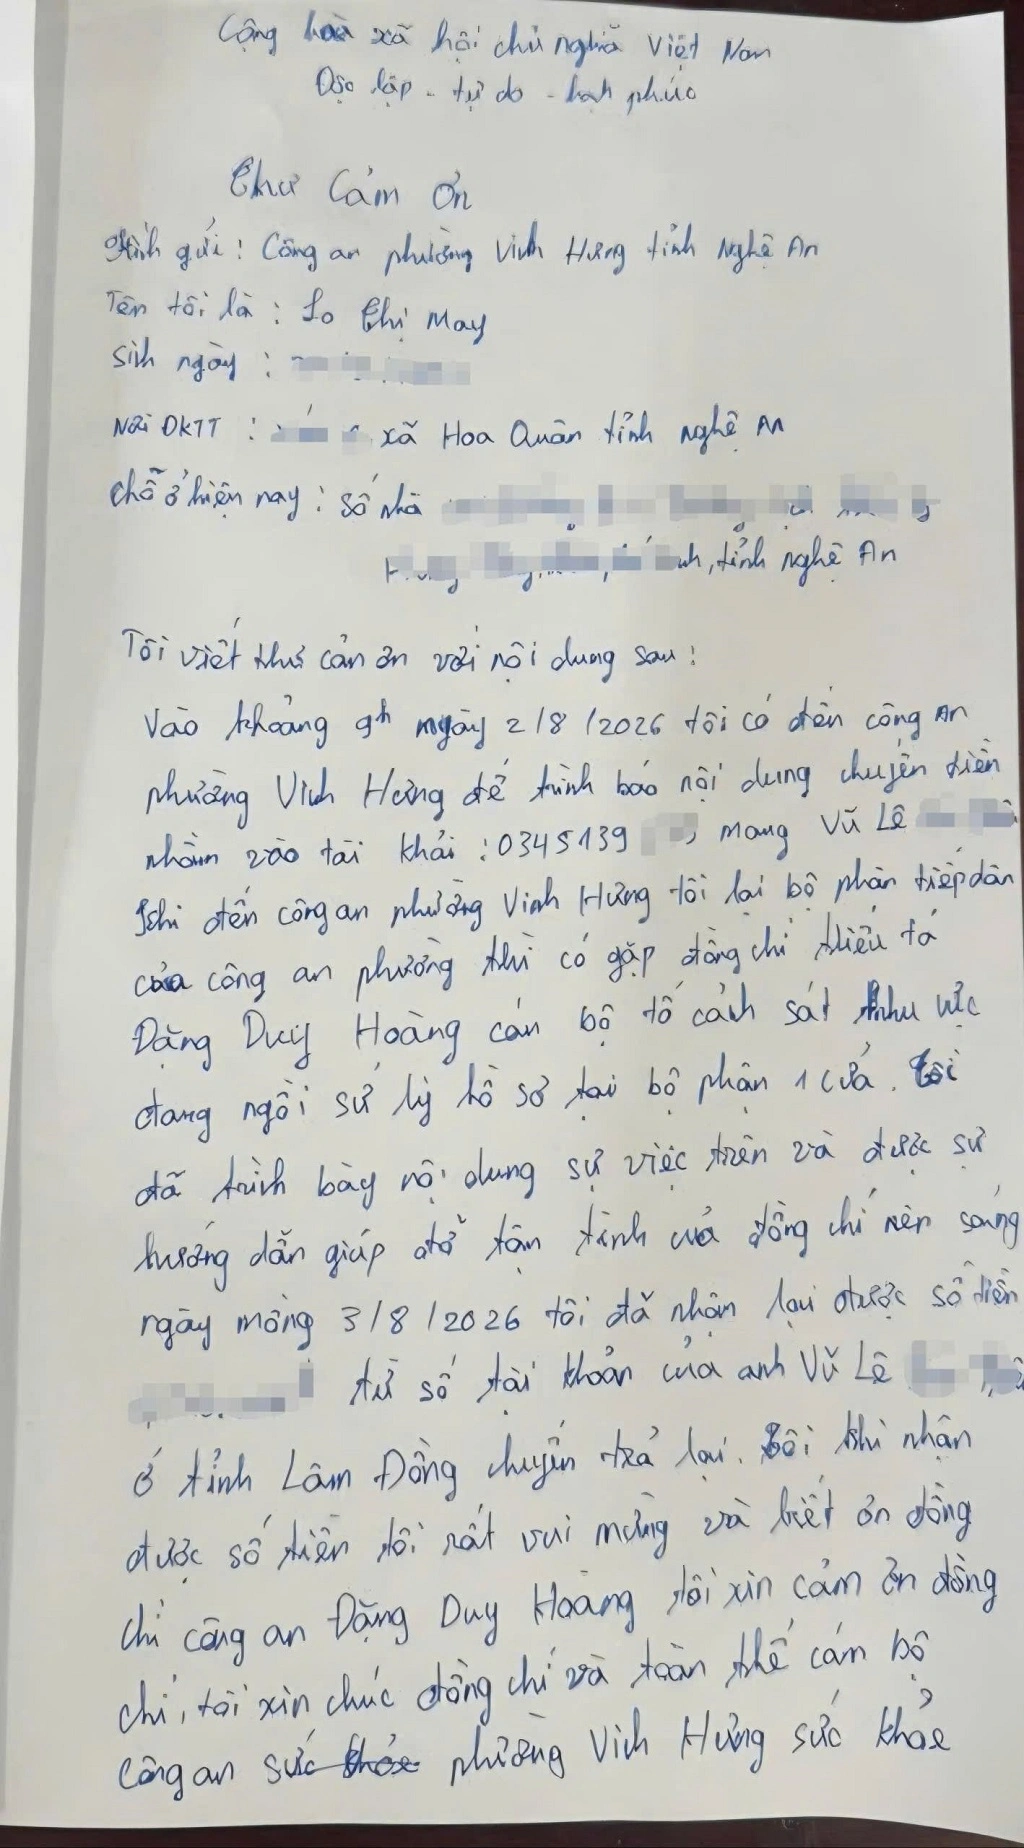 Cộng hoà xã hội chủ nghĩa Việt Nam
Độc lập - tự do - hạnh phúc
Thư Cảm Ơn
Kính gửi: Công an phường Vinh Hưng tỉnh Nghệ An
Tên tôi là: Lo Thị May
Sinh ngày:
Nơi ĐKTT: xã Hoa Quân tỉnh nghệ An
chỗ ở hiện nay: số nhà
, tỉnh nghệ An
Tôi viết thư cản ơn với nội dung sau:
Vào khoảng 9h ngày 2/8/2026 tôi có đến công An
phường Vinh Hưng để trình báo nội dung chuyển tiền
nhầm vào tài khải: 0345139 , mang Vũ Lê
khi đến công an phường Vinh Hưng tôi lại bộ phận tiếp dân
của công an phường thì có gặp đồng chí thiếu tá
Đặng Duy Hoàng cán bộ tổ cảnh sát khu vực
đang ngồi sử lý hồ sơ tại bộ phận 1 cửa. Tôi
đã trình bày nội dung sự việc trên và được sự
hướng dẫn giúp đỡ tận tình của đồng chí nên sáng
ngày mồng 3/8/2026 tôi đã nhận lại được số tiền
từ số tài khoản của anh Vũ Lê
ở tỉnh Lâm Đồng chuyển trả lại. Tôi khi nhận
được số tiền tôi rất vui mừng và biết ơn đồng
chí công an Đặng Duy Hoàng tôi xin cảm ơn đồng
chí, tôi xin chúc đồng chí và toàn thể cán bộ
công an sức khỏe phường Vinh Hưng sức khỏe